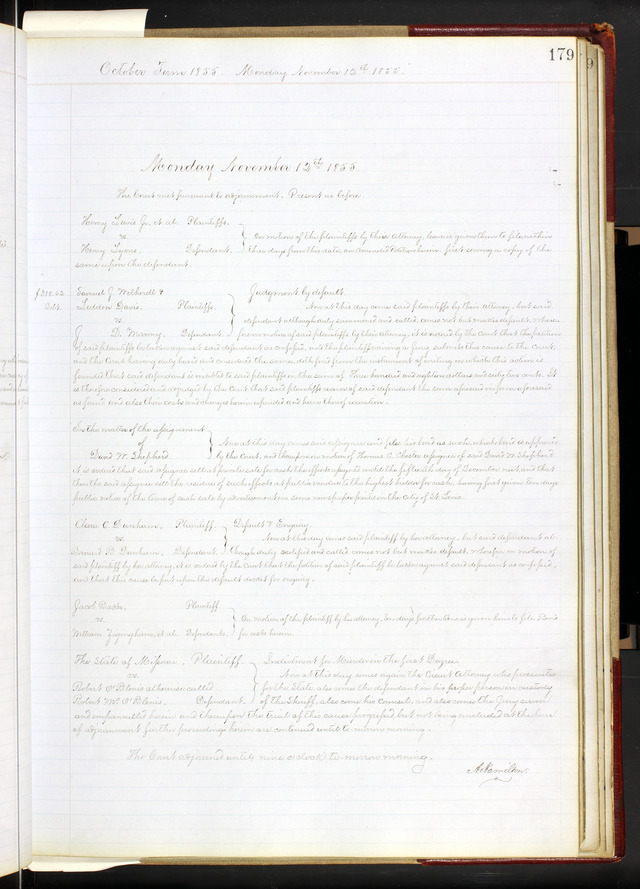 179
October Term 1855. Monday November 12th 1855.
Monday November 12th 1855.
The Court met pursuant to adjournment. Present as before.
Henry Davis Jr. et al. Plaintiffs.
vs.
Henry Lyons. Defendant.
On motion of the plaintiffs by their Attorney, leave is given them to file within
three days from this date, an amended Petition herein, first serving a copy of the
same upon the defendant.
$318.62
Debt.
Samuel J. Wetherell &
Davis. Plaintiffs.
vs.
J D. Defendant.
Judgment by default.
Now at this day come said plaintiffs by their Attorney, but said
defendant although duly summoned and called, comes not but makes default. Wherefore
on motion of said plaintiffs by their Attorney, it is ordered by the Court that the petition
of said plaintiffs be taken against said defendant as confessed, and the plaintiffs waiving a Jury, submit this cause to the Court,
and the Court having duly heard and considered the same, doth find from the instrument of writing on which this action is
founded that said defendant is indebted to said plaintiffs in the sum of Three hundred and eighteen dollars and sixty two cents. It
is therefore considered and adjudged by the Court that said plaintiffs recover of said defendant the sum aforesaid in form aforesaid
as found and also their costs and charges herein expended and have thereof execution.
In the matter of the assignment
of
David W. Shepherd.
Now at this day comes said assignee and files his bond as such, which bond is approved
by the Court, and thereupon on motion of Thomas C. Chester assignee of said David W. Shepherd
it is ordered that said assignee sell at private sale for cash the effects assigned until the fifteenth day of December next and that
then the said assignee sell the residue of such effects at public vendue to the highest bidder for cash, having first given ten days
public notice of the time of such sale by advertisement in some newspaper printed in the City of St. Louis.
Clara C. Dunham. Plaintiff.
vs.
Samuel B. Dunham. Defendant.
Default & Enquiry.
Now at this day comes said plaintiff by her attorney, but said defendant al-
though duly notified and called comes not but makes default. Wherefore on motion of
said plaintiff by her attorney, it is ordered by the Court that the petition of said plaintiff be taken against said defendant as confessed,
and that this cause be put upon the default docket for enquiry.
Jacob Plaintiff.
vs.
William et al. Defendants.
On motion of the plaintiff by his attorney, ten days further time is given him to file Bond
for costs herein.
The State of Missouri, Plaintiff.
vs.
Robert O'Blenis otherwise called
Robert McO'Blenis. Defendant.
Indictment for Murder in the first Degree.
Now at this day comes again the Circuit Attorney who prosecutes
for the State, also comes the defendant in his proper person in custody
of the Sheriff, also come his Counsel, and also comes the Jury sworn
and empannelled herein and thereupon the trial of this cause progressed but not being concluded at the hour
of adjournment further proceedings herein are continued until to morrow morning.
The Court adjourned until nine o'clock to morrow morning.
A. Hamilton.